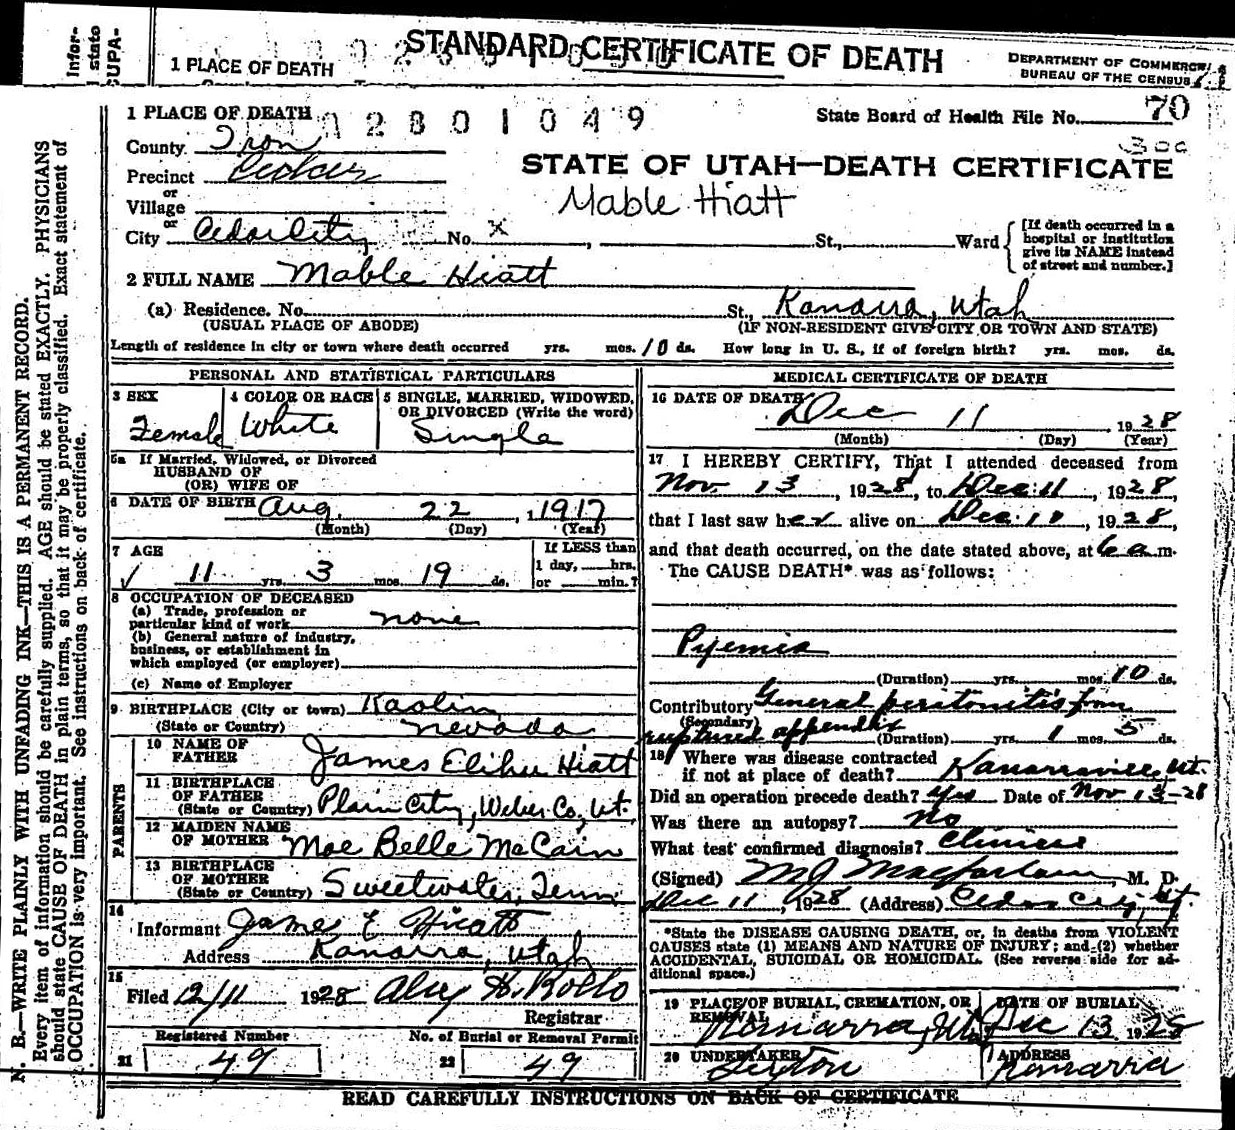 Infor-
l state
CUPA-
STANDARD CERTIFICATE OF DEATH
1 PLACE OF DEATH
DEPARTMENT OF COMMERCE
BUREAU OF THE CENSUS
1 PLACE OF DEATH
2 8 0 1 0 4 9
State Board of Health File No. 70
300
County Iron
STATE OF UTAH—DEATH CERTIFICATE
Precinct Cedar
or
Village
Mable Hiatt
or
City Cedar City No. X , St., Ward
[If death occurred in a
hospital or institution
give its NAME instead
of street and number.]
2 FULL NAME Mable Hiatt
(a) Residence. No. St., Kanarra, Utah
(USUAL PLACE OF ABODE) (IF NON-RESIDENT GIVE CITY OR TOWN AND STATE)
Length of residence in city or town where death occurred yrs. mos. 10 ds. How long in U. S., if of foreign birth? yrs. mos. ds.
PERSONAL AND STATISTICAL PARTICULARS
3 SEX 4 COLOR OR RACE 5 SINGLE, MARRIED, WIDOWED,
OR DIVORCED (Write the word)
Female White Single
5a If Married, Widowed, or Divorced
HUSBAND OF
(OR) WIFE OF
6 DATE OF BIRTH Aug. 22, 1917
(Month) (Day) (Year)
7 AGE If LESS than
1 day, hrs.
✓ 11 yrs. 3 mos. 19 ds. or min.?
8 OCCUPATION OF DECEASED
(a) Trade, profession or
particular kind of work none
(b) General nature of industry,
business, or establishment in
which employed (or employer)
(c) Name of Employer
9 BIRTHPLACE (City or town) Kaolin
(State or Country) Nevada
PARENTS
10 NAME OF
FATHER James Elihu Hiatt
11 BIRTHPLACE
OF FATHER
(State or Country) Plain City, Weber Co, Ut.
12 MAIDEN NAME
OF MOTHER Mae Belle McCain
13 BIRTHPLACE
OF MOTHER
(State or Country) Sweetwater, Tenn.
14
Informant James E Hiatt
Address Kanarra, Utah
15
Filed 12/11 1928 Alex H. Rollo
Registrar
Registered Number No. of Burial or Removal Permit
21 49 22 49
MEDICAL CERTIFICATE OF DEATH
16 DATE OF DEATH
Dec 11, 1928
(Month) (Day) (Year)
17 I HEREBY CERTIFY, That I attended deceased from
Nov. 13, 1928, to Dec. 11, 1928,
that I last saw her alive on Dec. 10, 1928,
and that death occurred, on the date stated above, at 6 a m.
The CAUSE DEATH* was as follows:
Pyemia
(Duration) yrs. mos. 10 ds.
Contributory General peritonitis from
(Secondary)
ruptured appendix (Duration) yrs. 1 mos. 5 ds.
18 Where was disease contracted
if not at place of death? Kanarraville, Ut.
Did an operation precede death? Yes Date of Nov 13-28
Was there an autopsy? No
What test confirmed diagnosis? Clinical
(Signed) M J Macfarlane, M. D.
Dec 11, 1928 (Address) Cedar City, Ut.
*State the DISEASE CAUSING DEATH, or, in deaths from VIOLENT
CAUSES state (1) MEANS AND NATURE OF INJURY; and (2) whether
ACCIDENTAL, SUICIDAL OR HOMICIDAL. (See reverse side for ad-
ditional space.)
19 PLACE OF BURIAL, CREMATION, OR
REMOVAL
DATE OF BURIAL
Kanarra, Utah Dec 13 1928
20 UNDERTAKER ADDRESS
Kanarra
READ CAREFULLY INSTRUCTIONS ON BACK OF CERTIFICATE
N. B.—WRITE PLAINLY WITH UNFADING INK—THIS IS A PERMANENT RECORD.
Every item of information should be carefully supplied. AGE should be stated EXACTLY. PHYSICIANS
should state CAUSE OF DEATH in plain terms, so that it may be properly classified. Exact statement of
OCCUPATION is very important. See instructions on back of certificate.